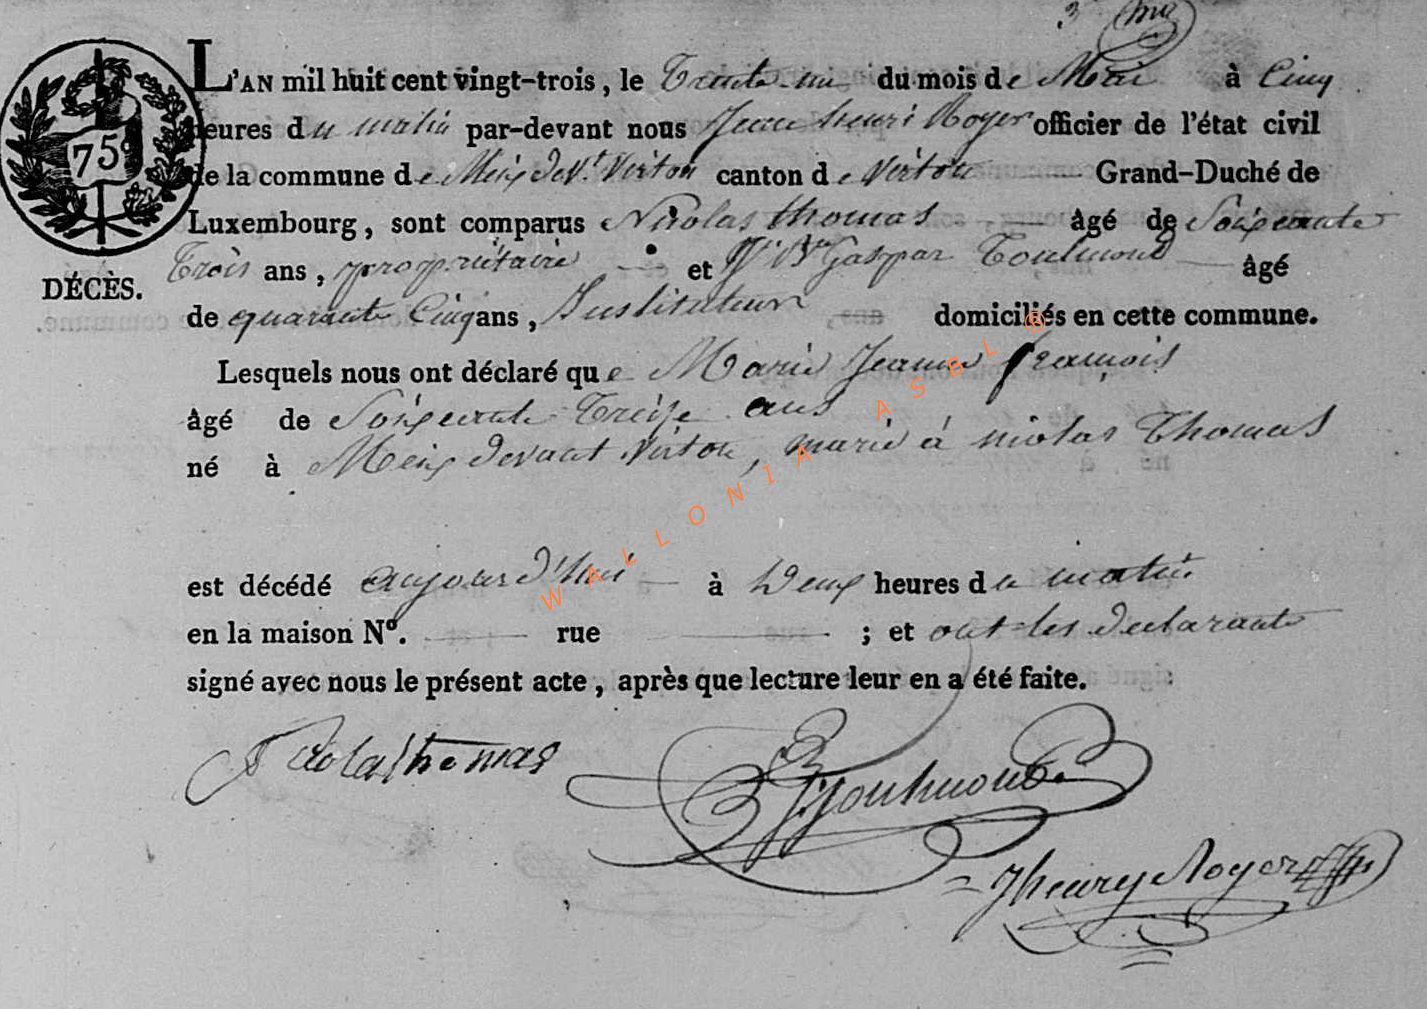 3 me
L'AN mil huit cent vingt-trois, le Trente un du mois de Mai à Cinq
heures du matin par-devant nous Jean henri Royer officier de l'état civil
de la commune de Meix dev.t Virton canton de Virton Grand-Duché de
Luxembourg, sont comparus Nicolas thomas âgé de Soixante
Trois ans, propriétaire et Gaspar Toulmond âgé
de quarante Cinq ans, Instituteur domiciliés en cette commune.
DÉCÈS.
75c
Lesquels nous ont déclaré que Marie Jeanne françois
âgé de Soixante Treize ans
né à Meix devant Virton, marié à nicolas Thomas
est décédé aujourd'hui à Deux heures du matin
en la maison No. rue ; et ont les déclarants
signé avec nous le présent acte, après que lecture leur en a été faite.
Nicolas thomas
Toulmond
Jhenry Royer
WALLONIA ASBL ®